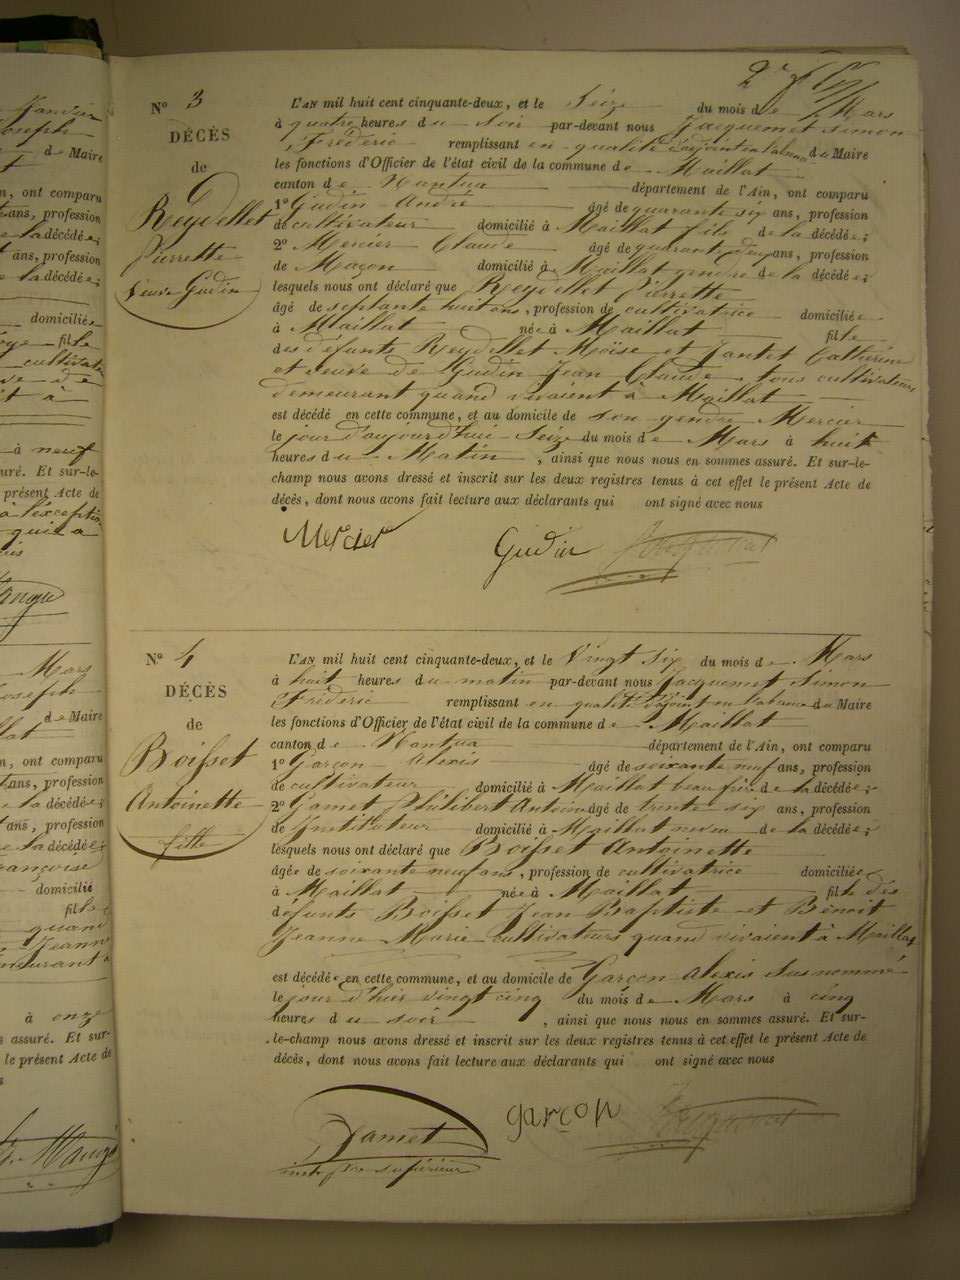 N° 3
DÉCÈS
de
Reydellet
Pierrette
Veuve Gudin
L'AN mil huit cent cinquante-deux, et le Seize du mois de Mars
à quatre heures du Soir par-devant nous Jacquemet Simon
Frédéric remplissant en qualité d'adjoint en l'absence du Maire
les fonctions d'Officier de l'état civil de la commune de Maillat
canton de Nantua département de l'Ain, ont comparu
1° Gudin André âgé de quarante six ans, profession
de cultivateur domicilié à Maillat fils de la décédée;
2° Mercier Claude âgé de quarante deux ans, profession
de Maçon domicilié à Maillat gendre de la décédée;
lesquels nous ont déclaré que Reydellet Pierrette
âgé de septante huit ans, profession de cultivatrice domiciliée
à Maillat née à Maillat fille
des défunts Reydellet Moïse et Jantet Catherine
et veuve de Gudin Jean Claude tous cultivateurs
demeurant quand vivaient à Maillat
est décédé en cette commune, et au domicile de son gendre Mercier
le jour d'aujourd'hui Seize du mois de Mars à huit
heures du Matin, ainsi que nous nous en sommes assuré. Et sur-le-
champ nous avons dressé et inscrit sur les deux registres tenus à cet effet le présent Acte de
décès, dont nous avons fait lecture aux déclarants qui ont signé avec nous
Mercier Gudin Jacquemet
N° 4
DÉCÈS
de
Boisset
Antoinette
fille
L'AN mil huit cent cinquante-deux, et le Vingt Six du mois de Mars
à huit heures du matin par-devant nous Jacquemet Simon
Frédéric remplissant en qualité d'adjoint en l'absence du Maire
les fonctions d'Officier de l'état civil de la commune de Maillat
canton de Nantua département de l'Ain, ont comparu
1° Garçon Alexis âgé de soixante neuf ans, profession
de cultivateur domicilié à Maillat beau frère de la décédée;
2° Gamet Philibert Antoine âgé de trente six ans, profession
de Instituteur domicilié à Maillat neveu de la décédée;
lesquels nous ont déclaré que Boisset Antoinette
âgée de soixante neuf ans, profession de cultivatrice domiciliée
à Maillat née à Maillat fille des
défunts Boisset Jean Baptiste et Benoit
Jeanne Marie cultivateurs quand vivaient à Maillat
est décédée en cette commune, et au domicile de Garçon Alexis Susnommé
le jour d'hier vingt cinq du mois de Mars à cinq
heures du soir, ainsi que nous nous en sommes assuré. Et sur-
le-champ nous avons dressé et inscrit sur les deux registres tenus à cet effet le présent Acte de
décès, dont nous avons fait lecture aux déclarants qui ont signé avec nous
Gamet garçon Jacquemet
supérieur